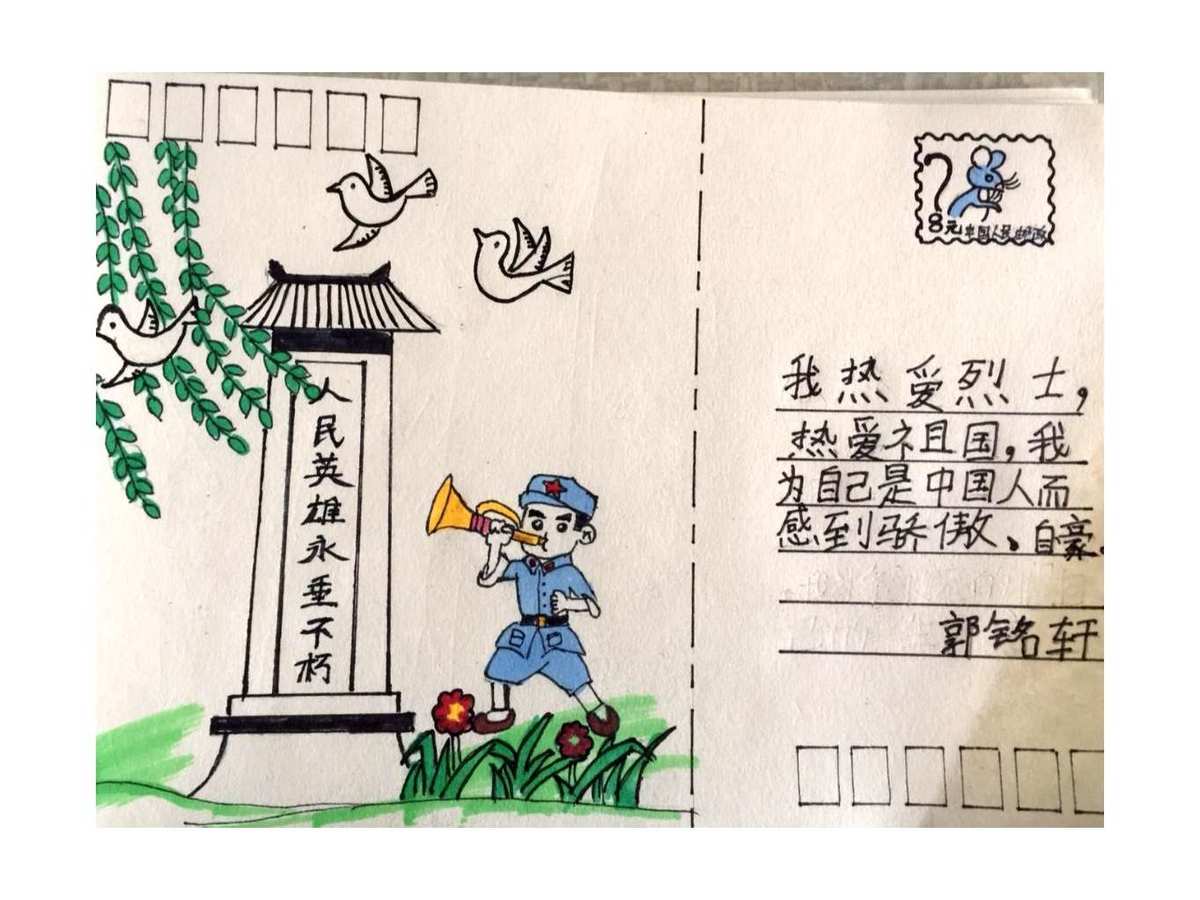 人民英雄永垂不朽
8元中国人民邮政
我热爱烈士，
热爱祖国，我
为自己是中国人而
感到骄傲、自豪。
郭铭轩